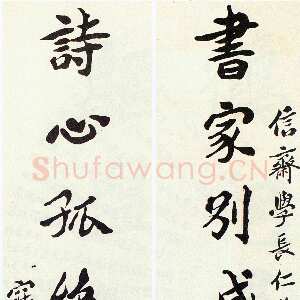 信齋學長仁
書家別成
詩心孤
Shufawang.CN